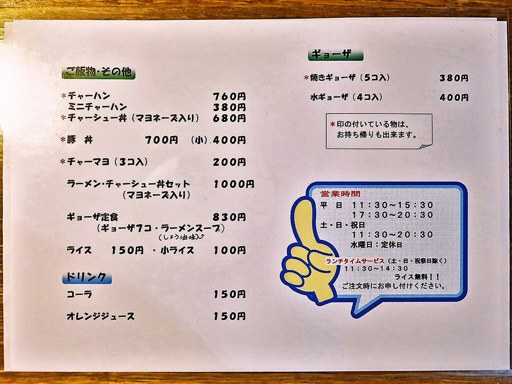 ご飯物・その他
*チャーハン 760円
ミニチャーハン 380円
*チャーシュー丼（マヨネーズ入り） 680円
*豚 丼 700円 （小）400円
*チャーマヨ（3コ入） 200円
ラーメン・チャーシュー丼セット 1000円
（マヨネーズ入り）
ギョーザ定食 830円
（ギョーザ7コ・ラーメンスープ）
（しょう油味）
ライス 150円 ・小ライス 100円
ドリンク
コーラ 150円
オレンジジュース 150円
ギョーザ
*焼きギョーザ（5コ入） 380円
水ギョーザ（4コ入） 400円
*印の付いている物は、
お持ち帰りも出来ます。
営業時間
平 日 11：30～15：30
17：30～20：30
土・日・祝日
11：30～20：30
水曜日：定休日
ランチタイムサービス（土・日・祝祭日除く）
11：30～14：30
ライス無料！！
ご注文時にお申し付けください。